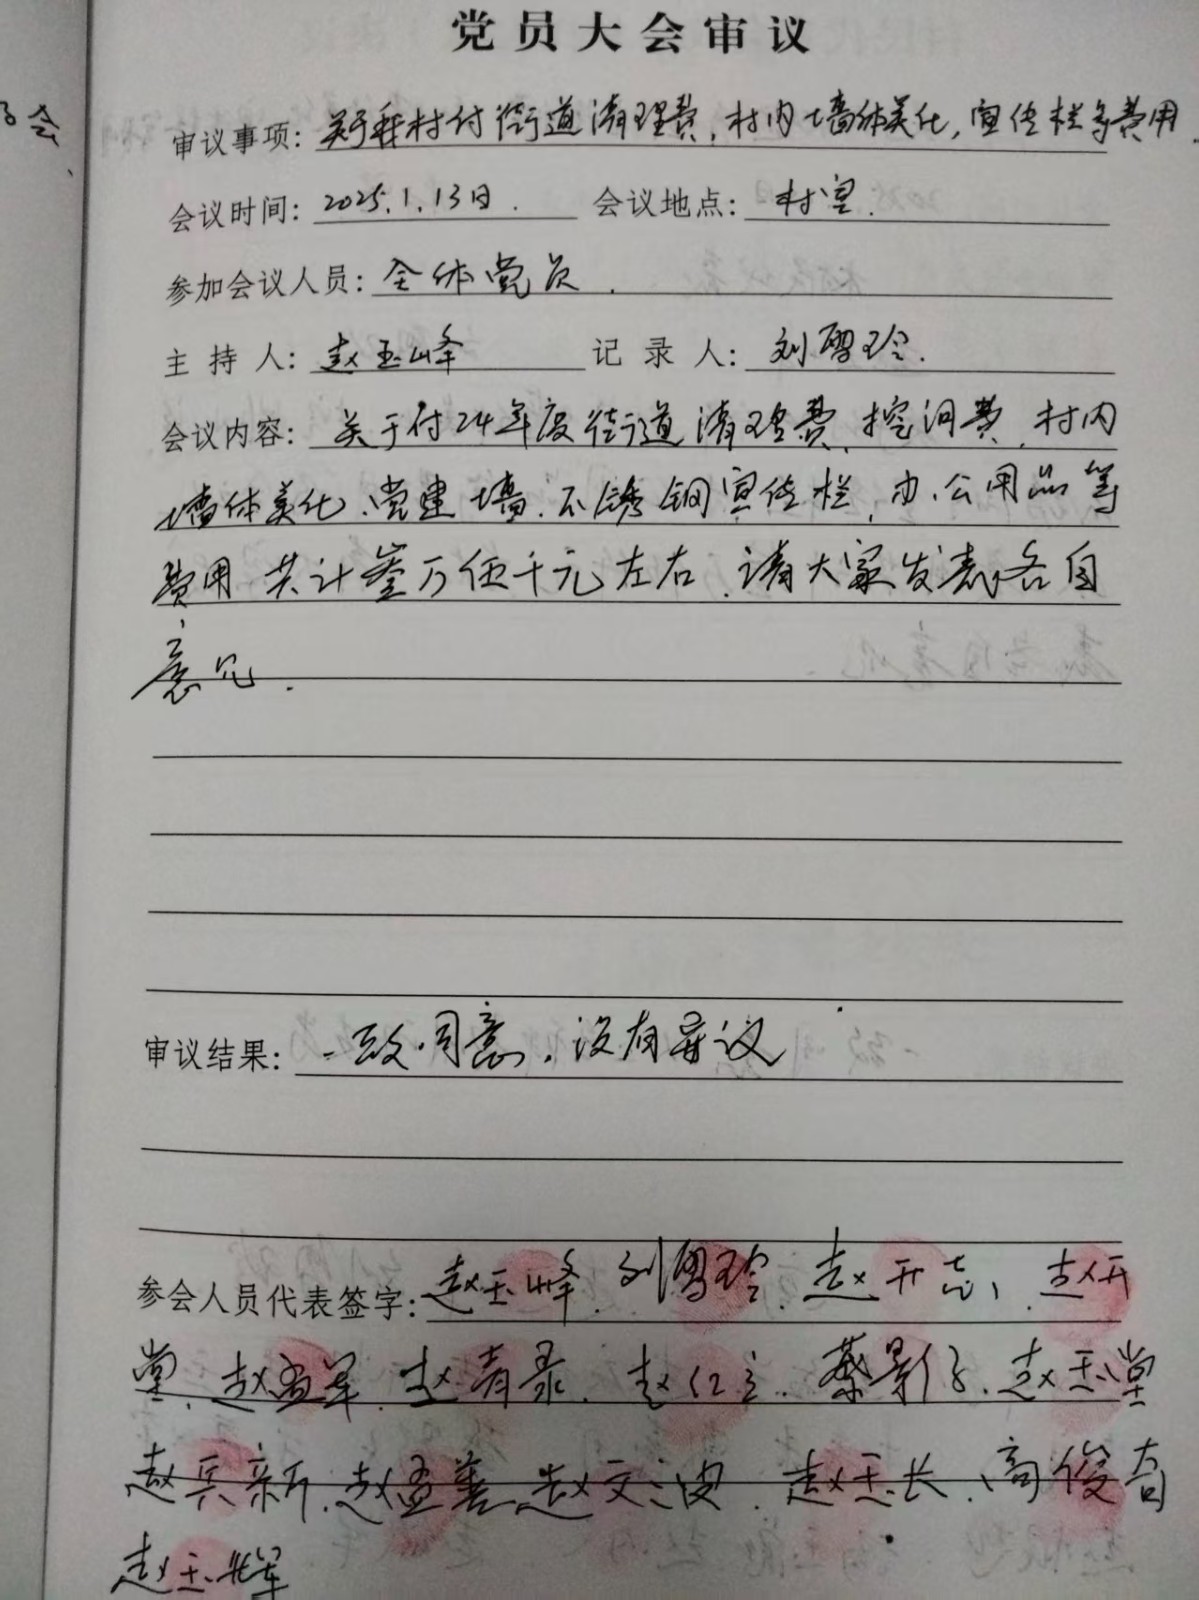 党员大会审议
审议事项：关于我村付街道清理费，村内墙体美化，宣传栏等费用．
会议时间：2025.1.13日． 会议地点：村室．
参加会议人员：全体党员．
主持人：赵玉峰 记录人：刘雪玲．
会议内容：关于付24年度街道清理费，挖沟费，村内
墙体美化、党建墙、不锈钢宣传栏，办公用品等
费用 共计叁万伍千元左右，请大家发表各自
意见．
审议结果：一致同意，没有异议
参会人员代表签字：赵玉峰．刘雪玲．赵开志．赵开
堂．赵孟军．赵青录．赵红主．蔡景仔．赵玉堂
赵兵新．赵孟善 赵文波．赵玉长．高俊奇
赵玉辉